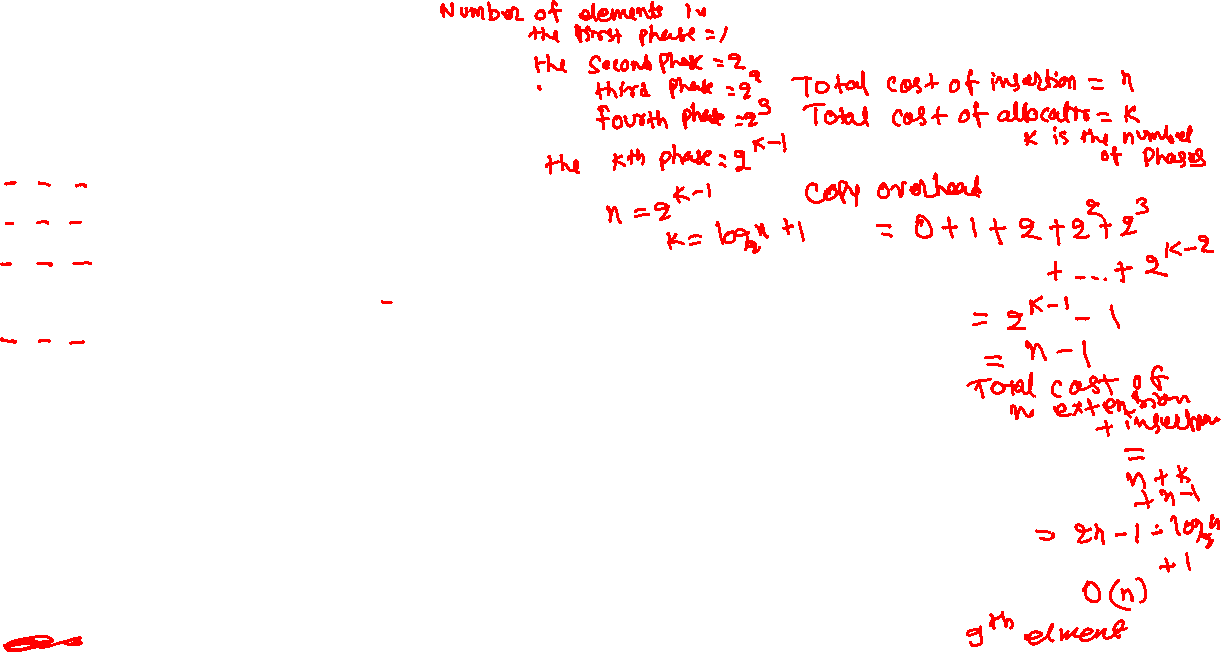 Number of elements in
the first phase = 1
the second phase = 2
third phase = 2^2
fourth phase = 2^3
the kth phase = 2^{k-1}
n = 2^{k-1}
k = log_2 n + 1
Total cost of insertion = n
Total cost of allocatn = k
k is the number
of phases
Copy overhead
= 0 + 1 + 2 + 2^2 + 2^3
+ ... + 2^{k-2}
= 2^{k-1} - 1
= n - 1
Total cost of
n extension
+ insertion
=
n + k
+ n - 1
= 2n - 1 + log_2 n
+ 1
O(n)
9th elment